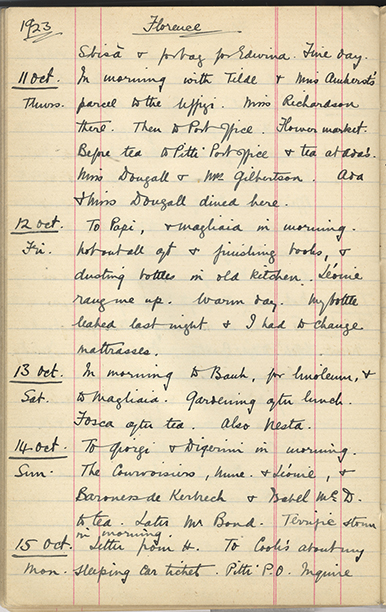 1923 Florence
Sbisà & for bag for Edwina. Fine day.
11 Oct. In morning with Tilde & Mrs Amherst's
Thurs. parcel to the Uffizi. Miss Richardson
there. Then to Post Office. Flower market.
Before tea to Pitti Post office & tea at Ada's.
Miss Dougall & Mrs Gilbertson. Ada
& Miss Dougall dined here.
12 Oct. To Papi, & magliaia in morning.
Fri. Not out all aft & finishing books, &
dusting bottles in old kitchen. Léonie
rang me up. Warm day. My bottle
leaked last night & I had to change
mattrasses.
13 Oct. In morning to Bank, for linoleum, &
Sat. to Magliaia. Gardening after lunch.
Fosca after tea. Also Nesta.
14 Oct. To Giorgi & Digerini in morning.
Sun. The Courvoisiers, Mme. & Léonie, &
Baroness de Kerbrech & Isabel McD.
to tea. Later Mr Bond. Terrific storm
in morning.
15 Oct. Letter from H. To Cook's about my
Mon. sleeping car ticket. Pitti P.O. Inquire